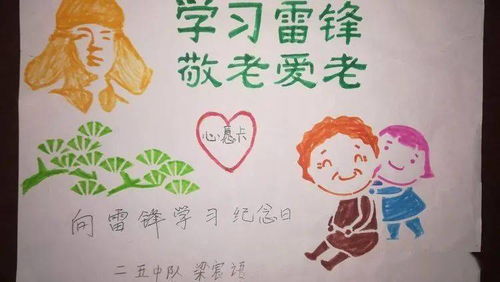 学习雷锋
敬老爱老
心愿卡
向雷锋学习纪念日
二五中队 梁宸语